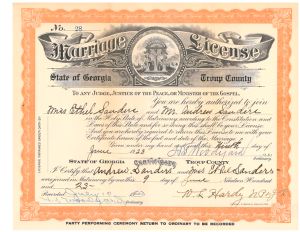 No. 28
Marriage License
State of Georgia Troup County
TO ANY JUDGE, JUSTICE OF THE PEACE, OR MINISTER OF THE GOSPEL.
You are hereby authorized to join
Miss Ethel Sanders and Mr. Andrew Sanders
in the Holy State of Matrimony according to the Constitution and
Laws of this State and for so doing this shall be your
And you are hereby required to return this License to me with your
Certificate hereon of the fact and date of the Marriage.
Given under my hand and seal this Ninth day of
June 1923
STATE OF GEORGIA Certificate TROUP COUNTY
I Certify that Andrew Sanders and Miss Ethel Sanders
were joined in Matrimony by me this 9 day of June Nineteen Hundred
and 23
Recorded
W. L. Hardy
PARTY PERFORMING CEREMONY RETURN TO ORDINARY TO BE RECORDED